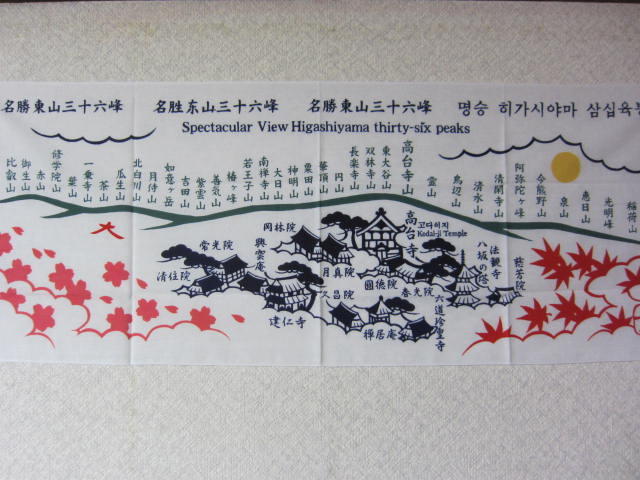 名勝東山三十六峰 名胜东山三十六峰 名勝東山三十六峰 명승 히가시야마 삼십육
Spectacular View Higashiyama thirty-six peaks
比叡山
御生山
赤山
修学院山
葉山
一乗寺山
茶山
瓜生山
北白川山
月待山
如意ヶ岳
吉田山
紫雲山
善気山
椿ヶ峰
若王子山
南禅寺山
大日山
神明山
粟田山
華頂山
円山
長楽寺山
双林寺山
東大谷山
高台寺山
霊山
鳥辺山
清水山
清閑寺山
阿弥陀ヶ峰
今熊野山
泉山
恵日山
光明峰
稲荷山
高台寺
고다이지
Kodai-ji Temple
岡林院
興雲庵
常光院
清住院
月真院
圓徳院
久昌院
春光院
建仁寺
禅居庵
六道珍皇寺
八坂の塔
法観寺
慈芳院